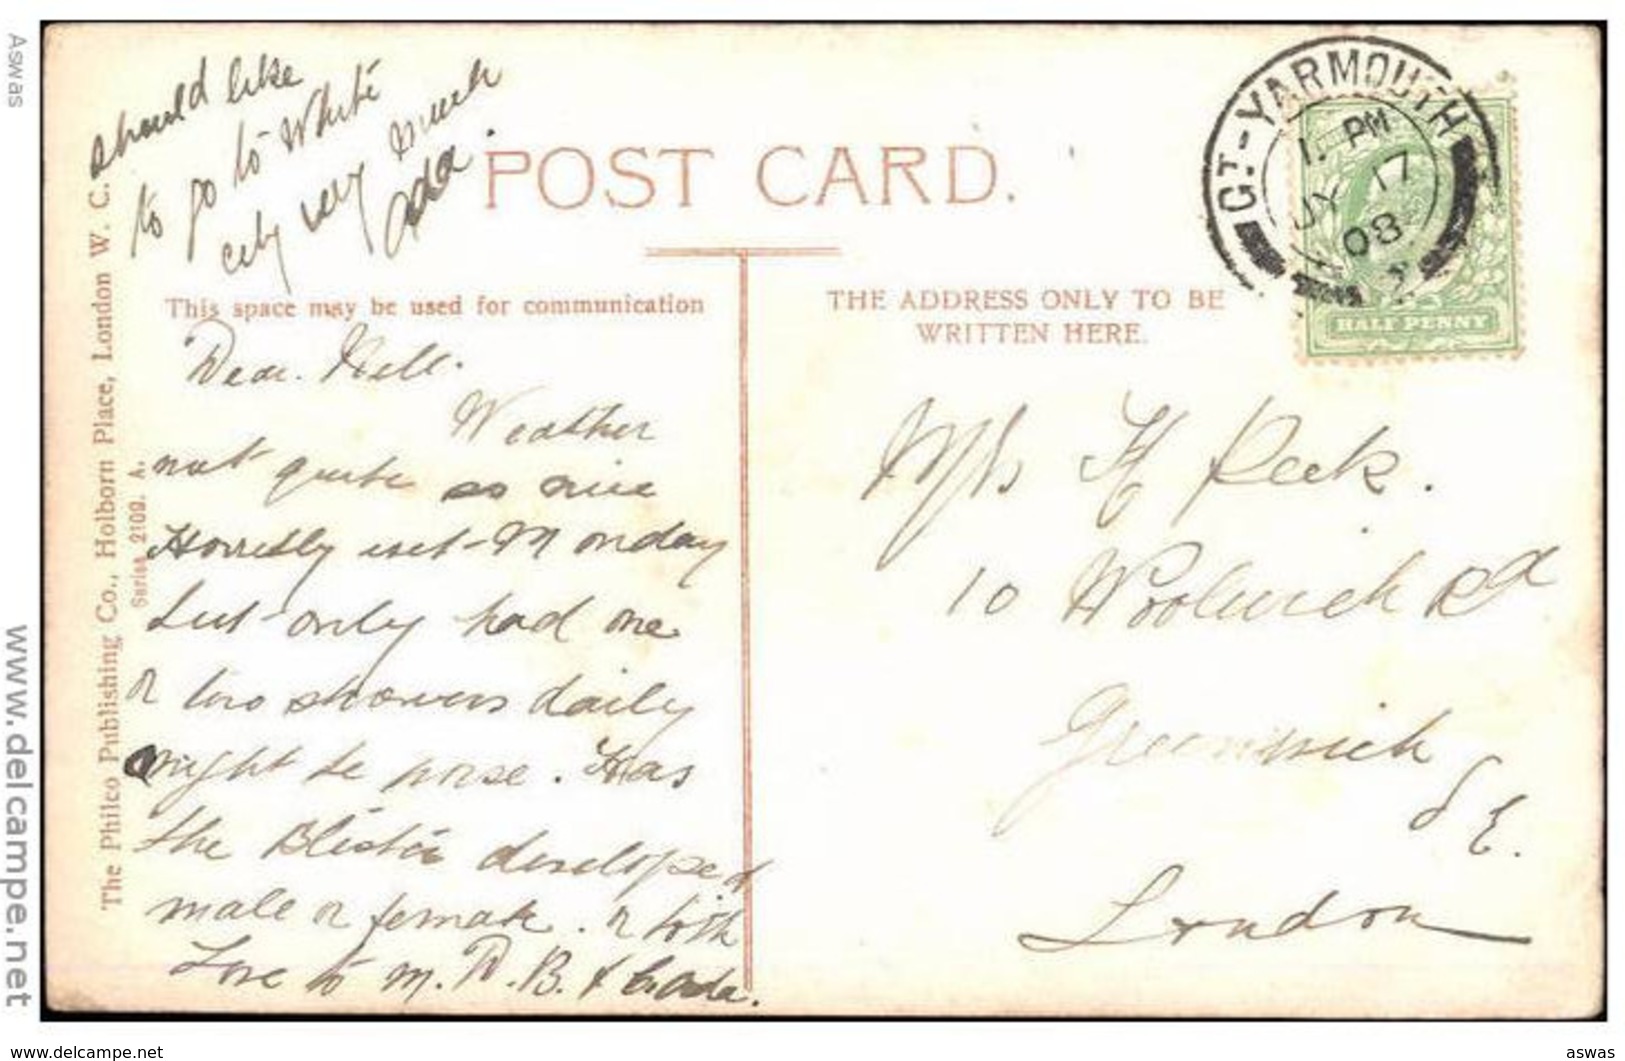 Aswas
www.delcampe.net
should like
to go to White
city very much
Ada
POST CARD.
GT-YARMOUTH
1. PM
JY 17
08
HALF PENNY
The Philco Publishing Co., Holborn Place, London W. C.
Series 2109. A.
This space may be used for communication
THE ADDRESS ONLY TO BE
WRITTEN HERE.
Dear Nell.
Weather
not quite so nice
Horribly wet Monday
but only had one
or two showers daily
might be worse. Has
the Blister developed
male or female. or both
Love to M. D. B. &
Mrs H Peek.
10 Woolwich Rd
Greenwich
S E.
London
www.delcampe.com
aswas